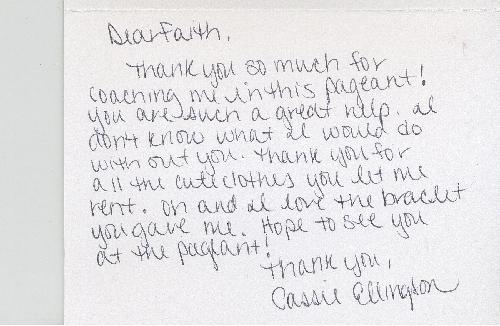 Dear Faith,
Thank you so much for
coaching me in this pageant!
you are such a great help. I
don't know what I would do
with out you. Thank you for
all the cute clothes you let me
rent. Oh and I love the braclet
you gave me. Hope to see you
at the pageant!
Thank you,
Cassie Ellington